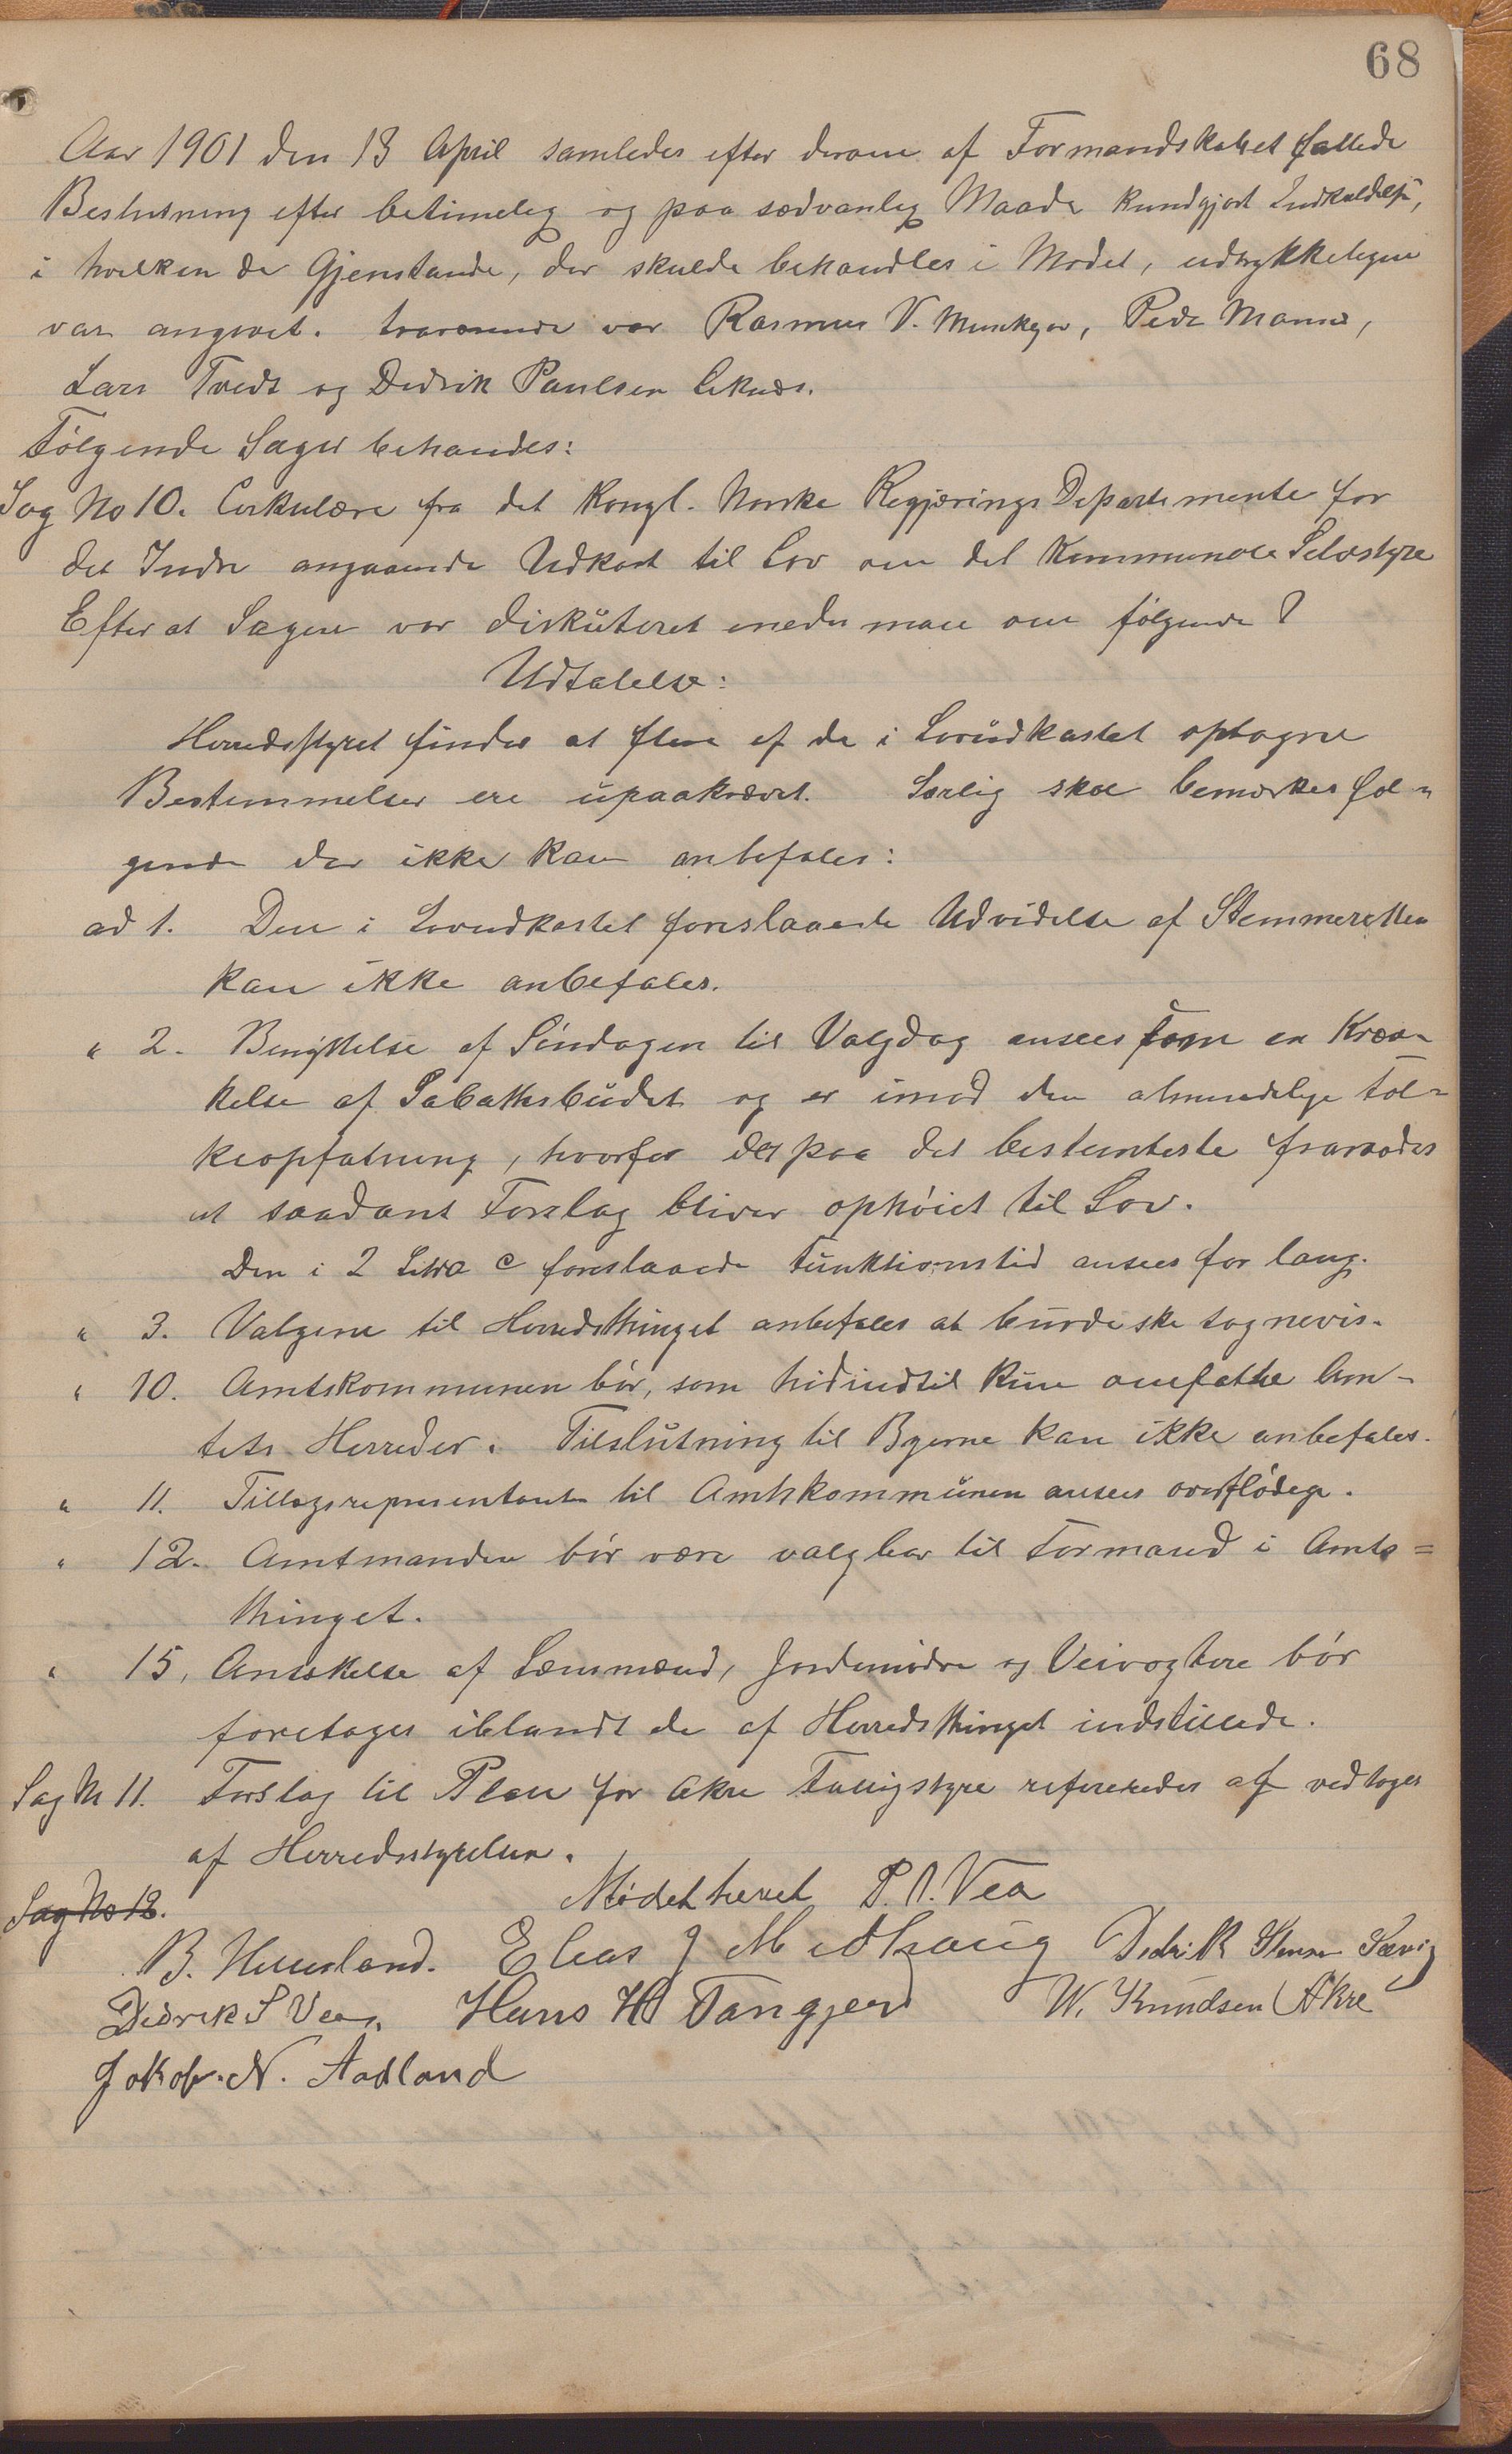 68
Aar 1901 den 13 April samledes efter derom af Formandskabet fattede
Beslutning efter betimelig og paa sædvanlig Maade kundgjort Indkaldelse,
i hvilken de Gjenstande, der skulde behandles i Mødet, udtrykkeligen
var angivet. Fraværende var Rasmus V. Munkejor, Peder Mannes,
Lars Tvedt og Dedrik Paulsen
Følgende Sager behandes:
Sag No 10. Cirkulære fra det Kongl. Norske Regjærings Departemente for
det Indre angaaende Udkast til Lov om det Kommunale Selvstyre
Efter at Sagen var diskuteret enedes man om følgende
Udtalelse:
Herredsstyret finder at flere af de i Lovudkastet optagne
Bestemmelser ere upaakrævet. Særlig skal bemærkes føl-
gende der ikke kan anbefales:
ad 1. Den i Lovudkastet foreslaaede Udvidelse af Stemmeretten
kan ikke anbefales.
" 2. Benyttelse af Søndagen til Valgdag ansees som en Kræn-
kelse af Sabathsbudet og er imod den almindelige Fol-
keopfatning, hvorfor det paa det bestemteste fraraades
at saadant Forslag bliver ophøiet til Lov.
Den i 2 Litra c foreslaaede Funktionstid ansees for lang.
" 3. Valgene til Herredsthinget anbefales at burde ske sognevis.
" 10. Amtskommunen bør, som hidindtil kun omfatte Am-
tets Herreder. Tilslutning til Byerne kan ikke anbefales.
" 11. Tillægsrepresentant til Amtskommunen ansees overflødige.
" 12. Amtmanden bør være valgbar til Formand i Amts=
thinget.
" 15, Ansættelse af Lensmænd, Jordemødre og Veivogtere bør
foretages iblandt de af Herredsthinget indstillede.
Sag N 11. Forslag til Plan for Akre Fattigstyre refereredes af vedtoges
af Herredsstyrelsen.
Mødet hevet P. A. Vea
Sag No 12.
B. Hemland. Elias J Medhaug Dedrik Stensen Sævig
Didrik S Vea. Hans H Tangjerd W. Knudsen Åkre
Jakob. N. Aadland